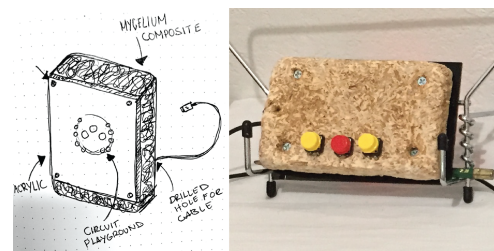 MYCELIUM
COMPOSITE
ACRYLIC
CIRCUIT
PLAYGROUND
DRILLED
HOLE FOR
CABLE